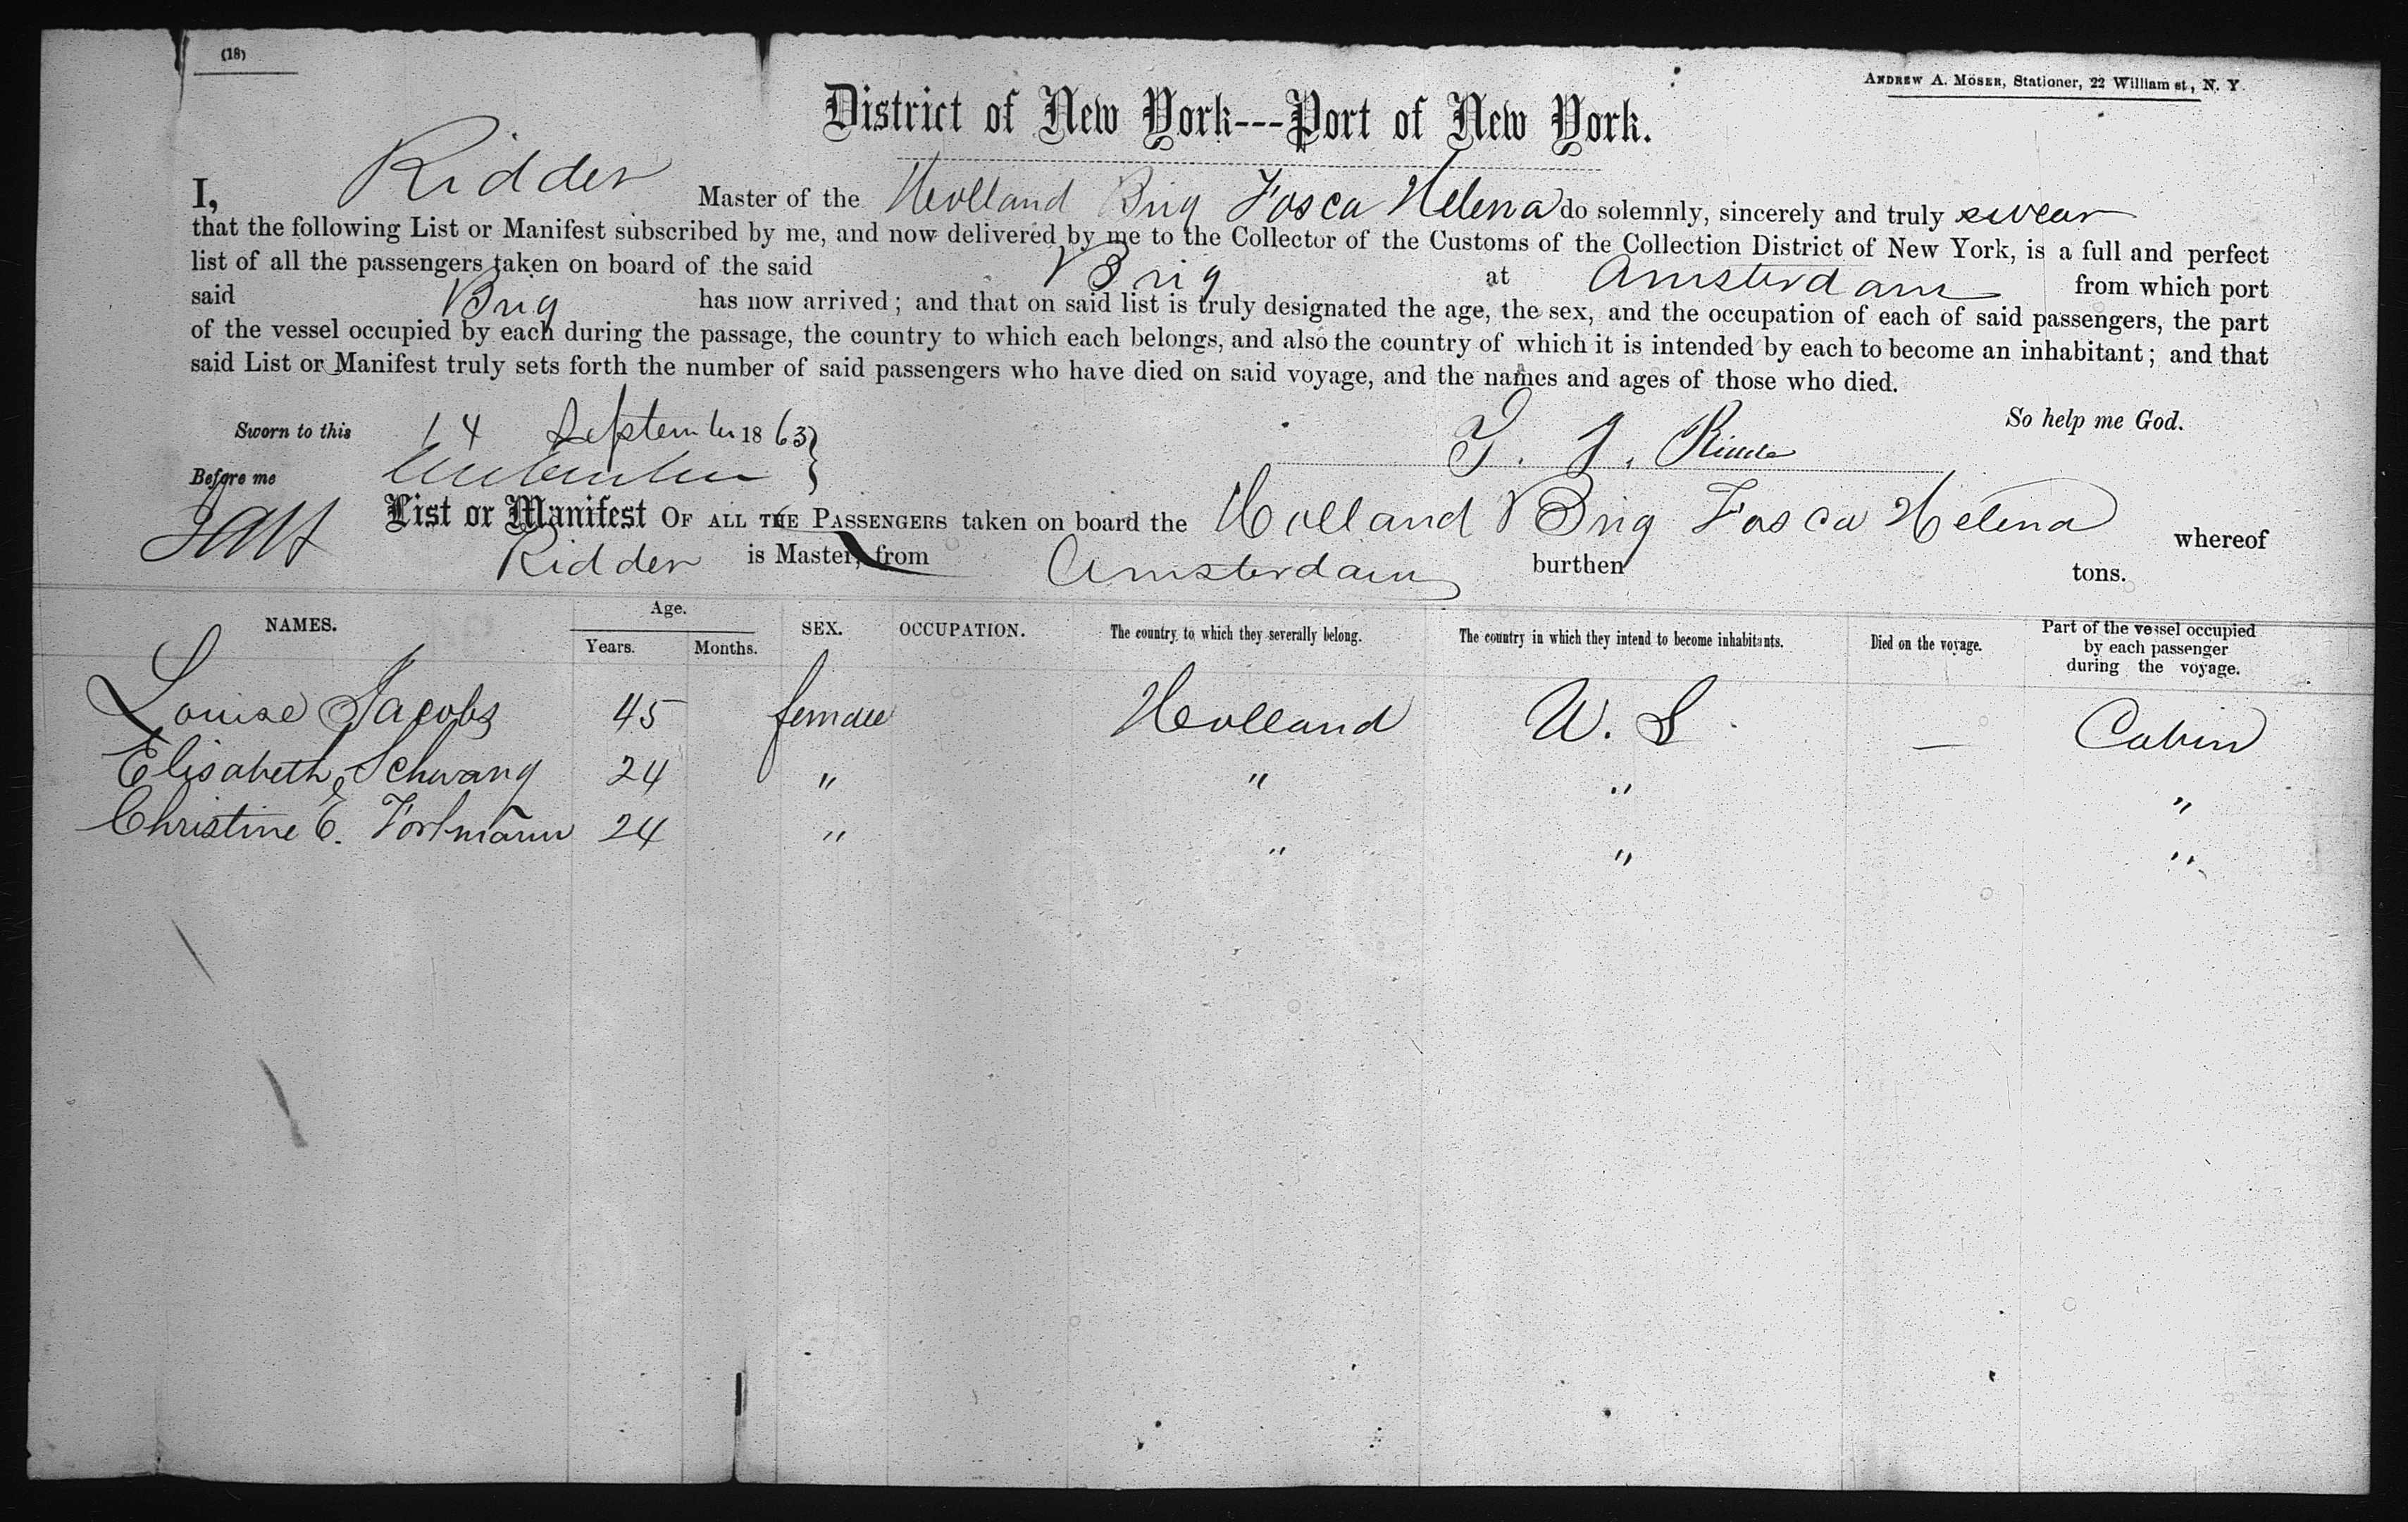 (18)
ANDREW A. MÖSER, Stationer, 22 William st., N. Y.
District of New York---Port of New York.
I, Ridder Master of the Holland Brig Fosca Helena do solemnly, sincerely and truly swear
that the following List or Manifest subscribed by me, and now delivered by me to the Collector of the Customs of the Collection District of New York, is a full and perfect
list of all the passengers taken on board of the said Brig at Amsterdam from which port
said Brig has now arrived; and that on said list is truly designated the age, the sex, and the occupation of each of said passengers, the part
of the vessel occupied by each during the passage, the country to which each belongs, and also the country of which it is intended by each to become an inhabitant; and that
said List or Manifest truly sets forth the number of said passengers who have died on said voyage, and the names and ages of those who died.
So help me God.
Sworn to this 14 September 1863
Before me
List or Manifest OF ALL THE PASSENGERS taken on board the Holland Brig Fosca Helena whereof
Ridder is Master, from Amsterdam burthen tons.
NAMES. Age. Years. Months. SEX. OCCUPATION. The country to which they severally belong. The country in which they intend to become inhabitants. Died on the voyage. Part of the vessel occupied by each passenger during the voyage.
Louise Jacobs 45 female Holland U. S — Cabin
Elisabeth Schwang 24 " " " "
Christine E. Fortmann 24 " " " "